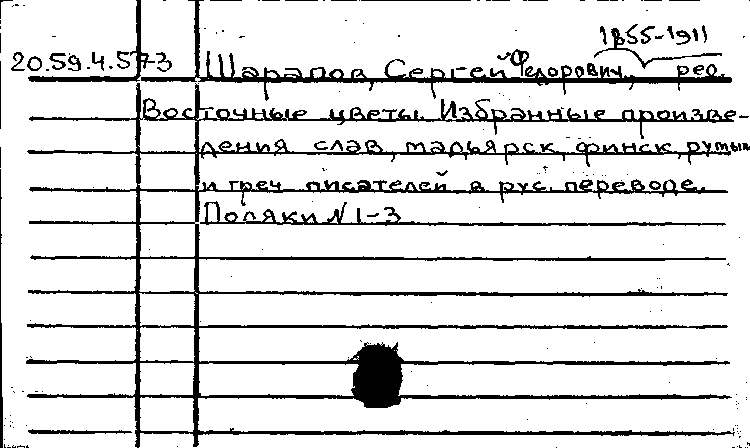 1855-1911
20.59.4.573 Шарапов, Сергей Федорович, ред.
Восточные цветы. Избранные произве-
дения слав, мадьярск, финск, румын
и греч писателей в рус. переводе.
Поляки N 1-3